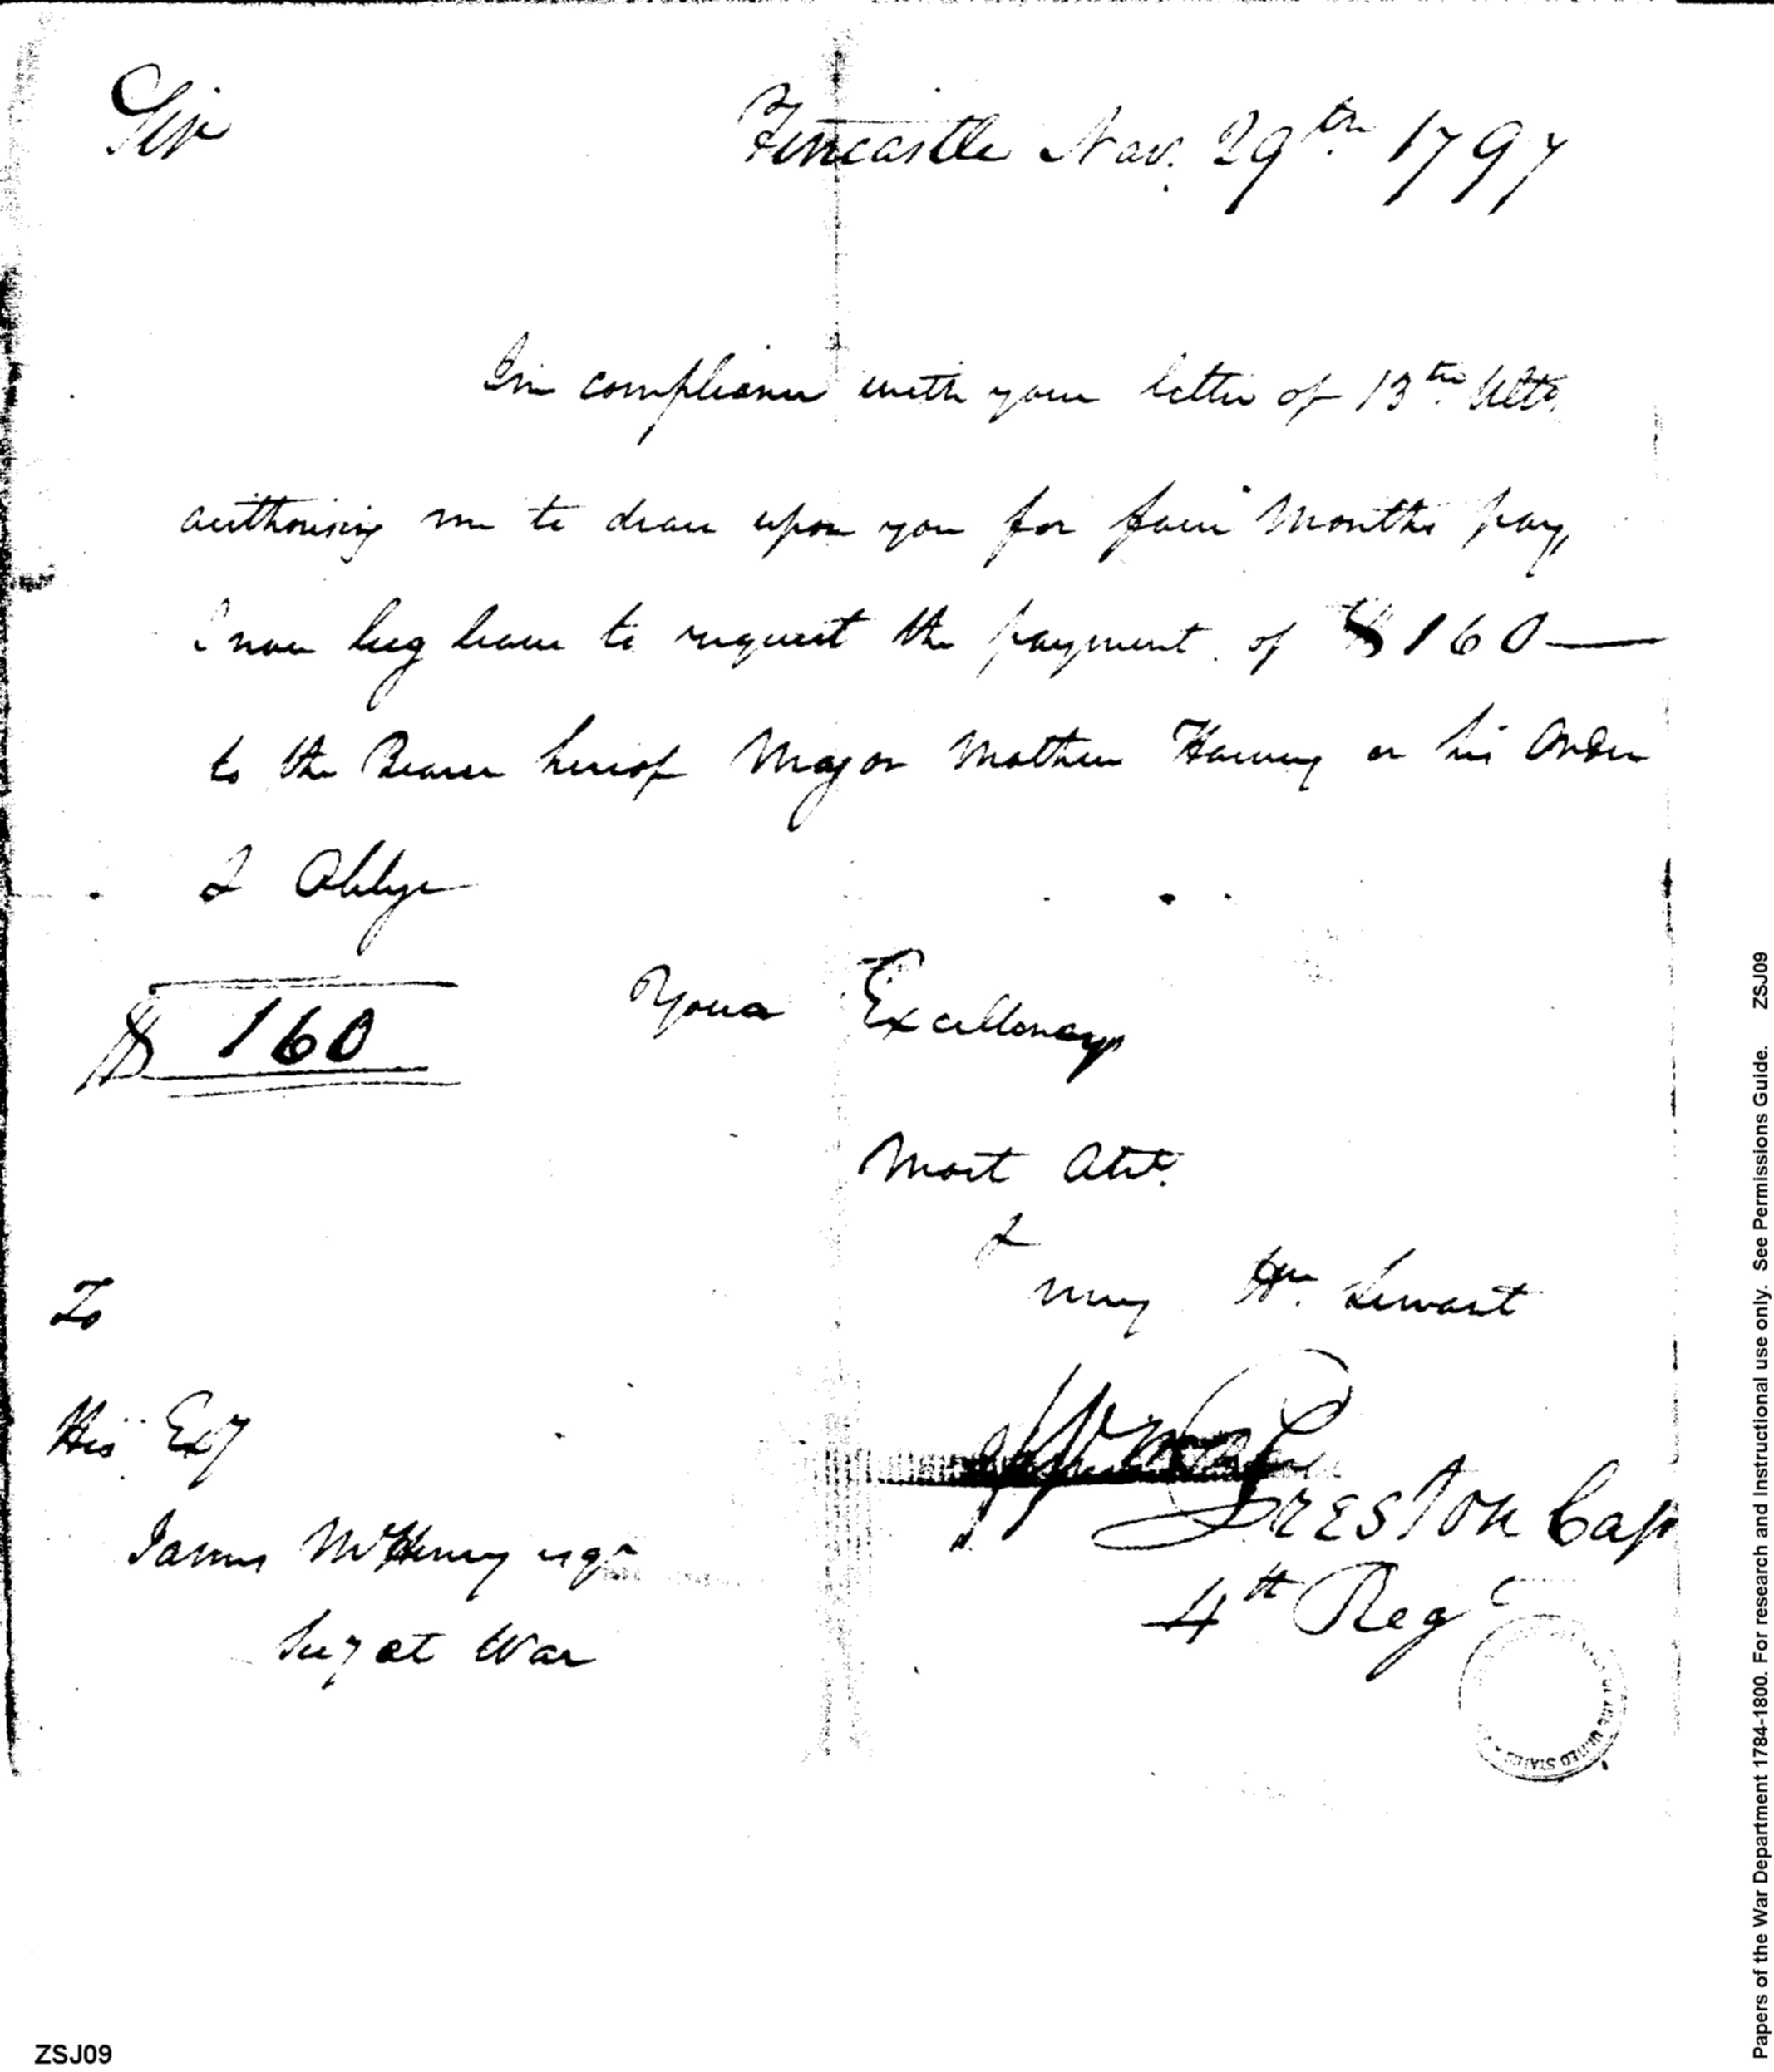 Sir
Fincastle Nov. 29th 1797
In complience with your letter of 13th Ulto
authorising me to draw upon you for four Months pay,
I now beg leave to request the payment of $160—
to the Bearer hereof Major Mathew Harvey or his Order
& Oblige
$ 160
Your Excellency
Most Obt.
&
very Hm. Servant
Wm
Preston Cap
4th Regt
To
His Exy
James McHenry esqr
Secy at War
UNITED STATES
Papers of the War Department 1784-1800. For research and Instructional use only. See Permissions Guide. ZSJ09
ZSJ09